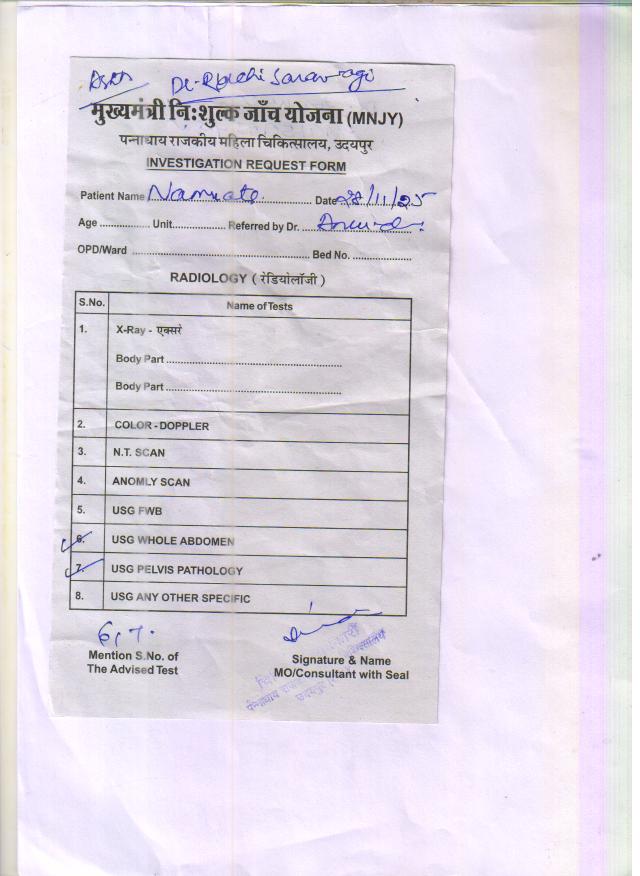 Dr. Ruchi Saravagi
मुख्यमंत्री नि:शुल्क जाँच योजना (MNJY)
पन्नाधाय राजकीय महिला चिकित्सालय, उदयपुर
INVESTIGATION REQUEST FORM
Patient Name Namrata Date 28/11/25
Age .................. Unit................... Referred by Dr.
OPD/Ward ................................................ Bed No. ....................
RADIOLOGY ( रेडियोलॉजी )
S.No. Name of Tests
1. X-Ray - एक्सरे
Body Part ............................................................
Body Part ............................................................
2. COLOR - DOPPLER
3. N.T. SCAN
4. ANOMLY SCAN
5. USG FWB
6. USG WHOLE ABDOMEN
7. USG PELVIS PATHOLOGY
8. USG ANY OTHER SPECIFIC
6, 7.
Mention S.No. of
The Advised Test
Signature & Name
MO/Consultant with Seal